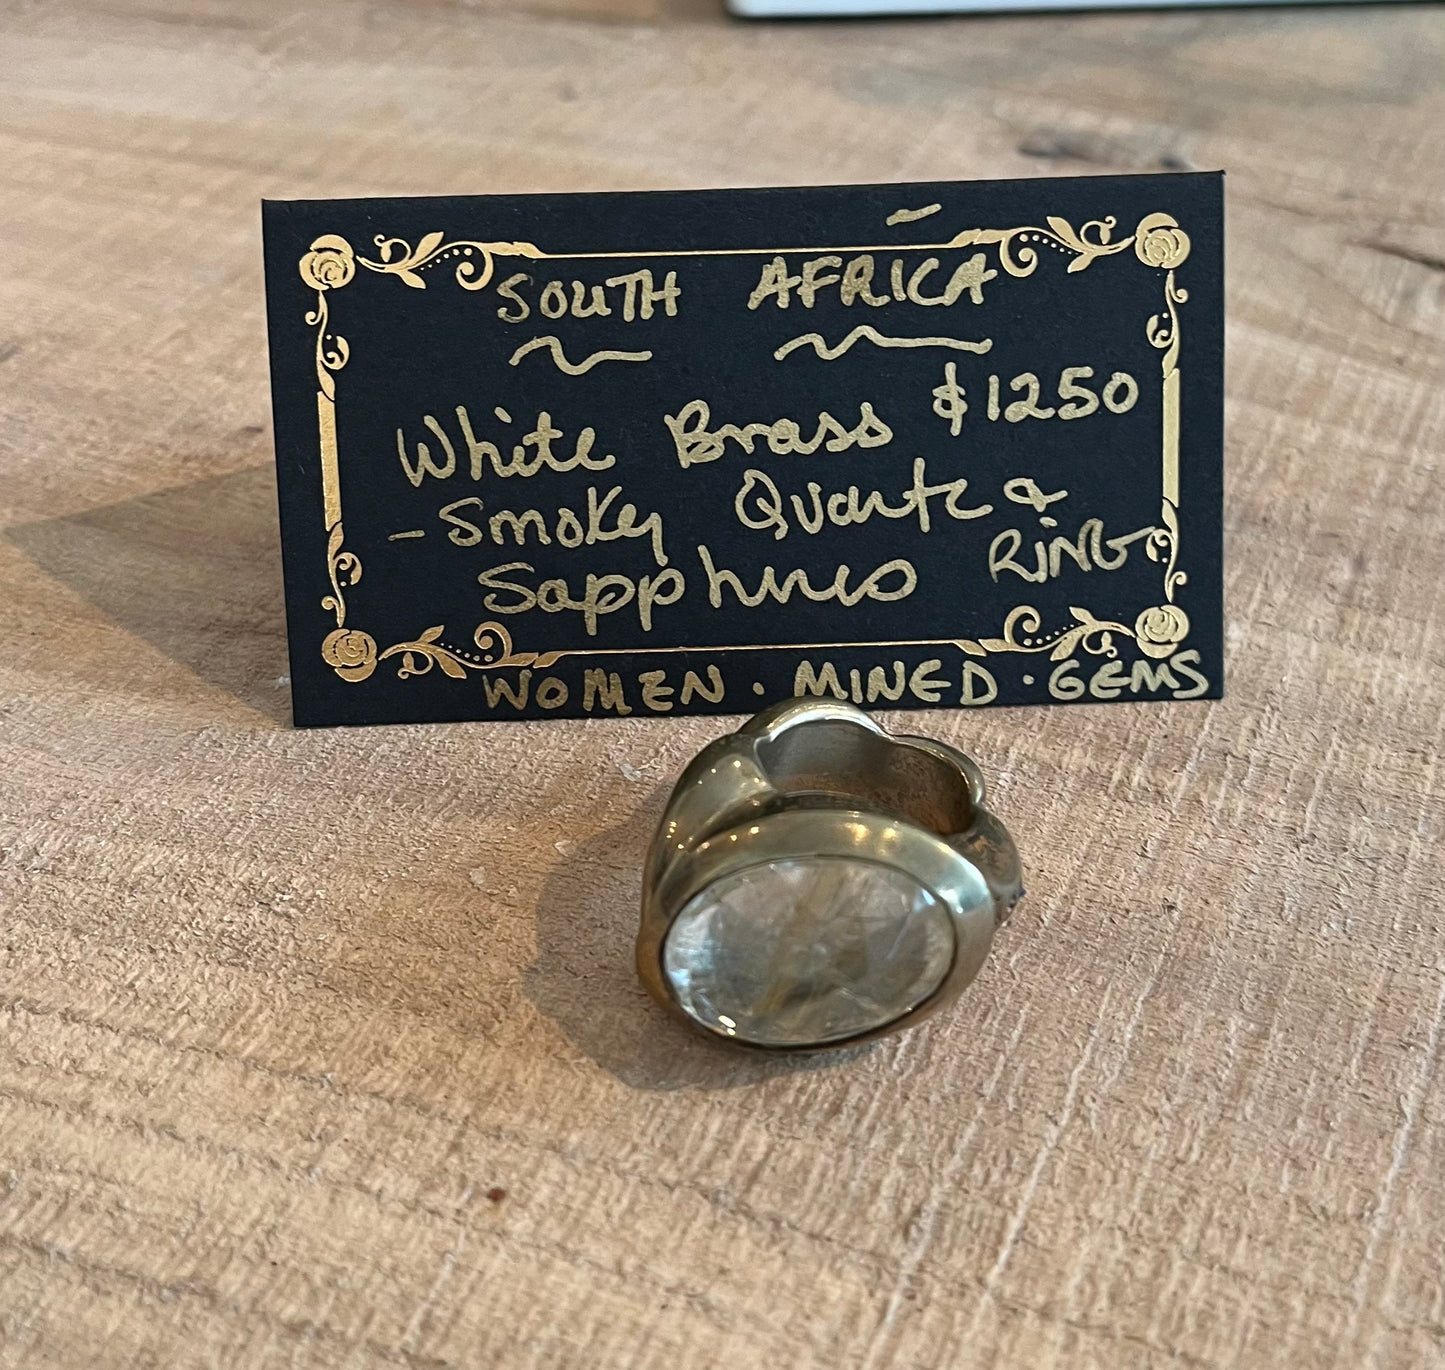 SOUTH AFRICA
$1250
White Brass
- Smoky Quartz &
Sapphires RING
WOMEN · MINED · GEMS